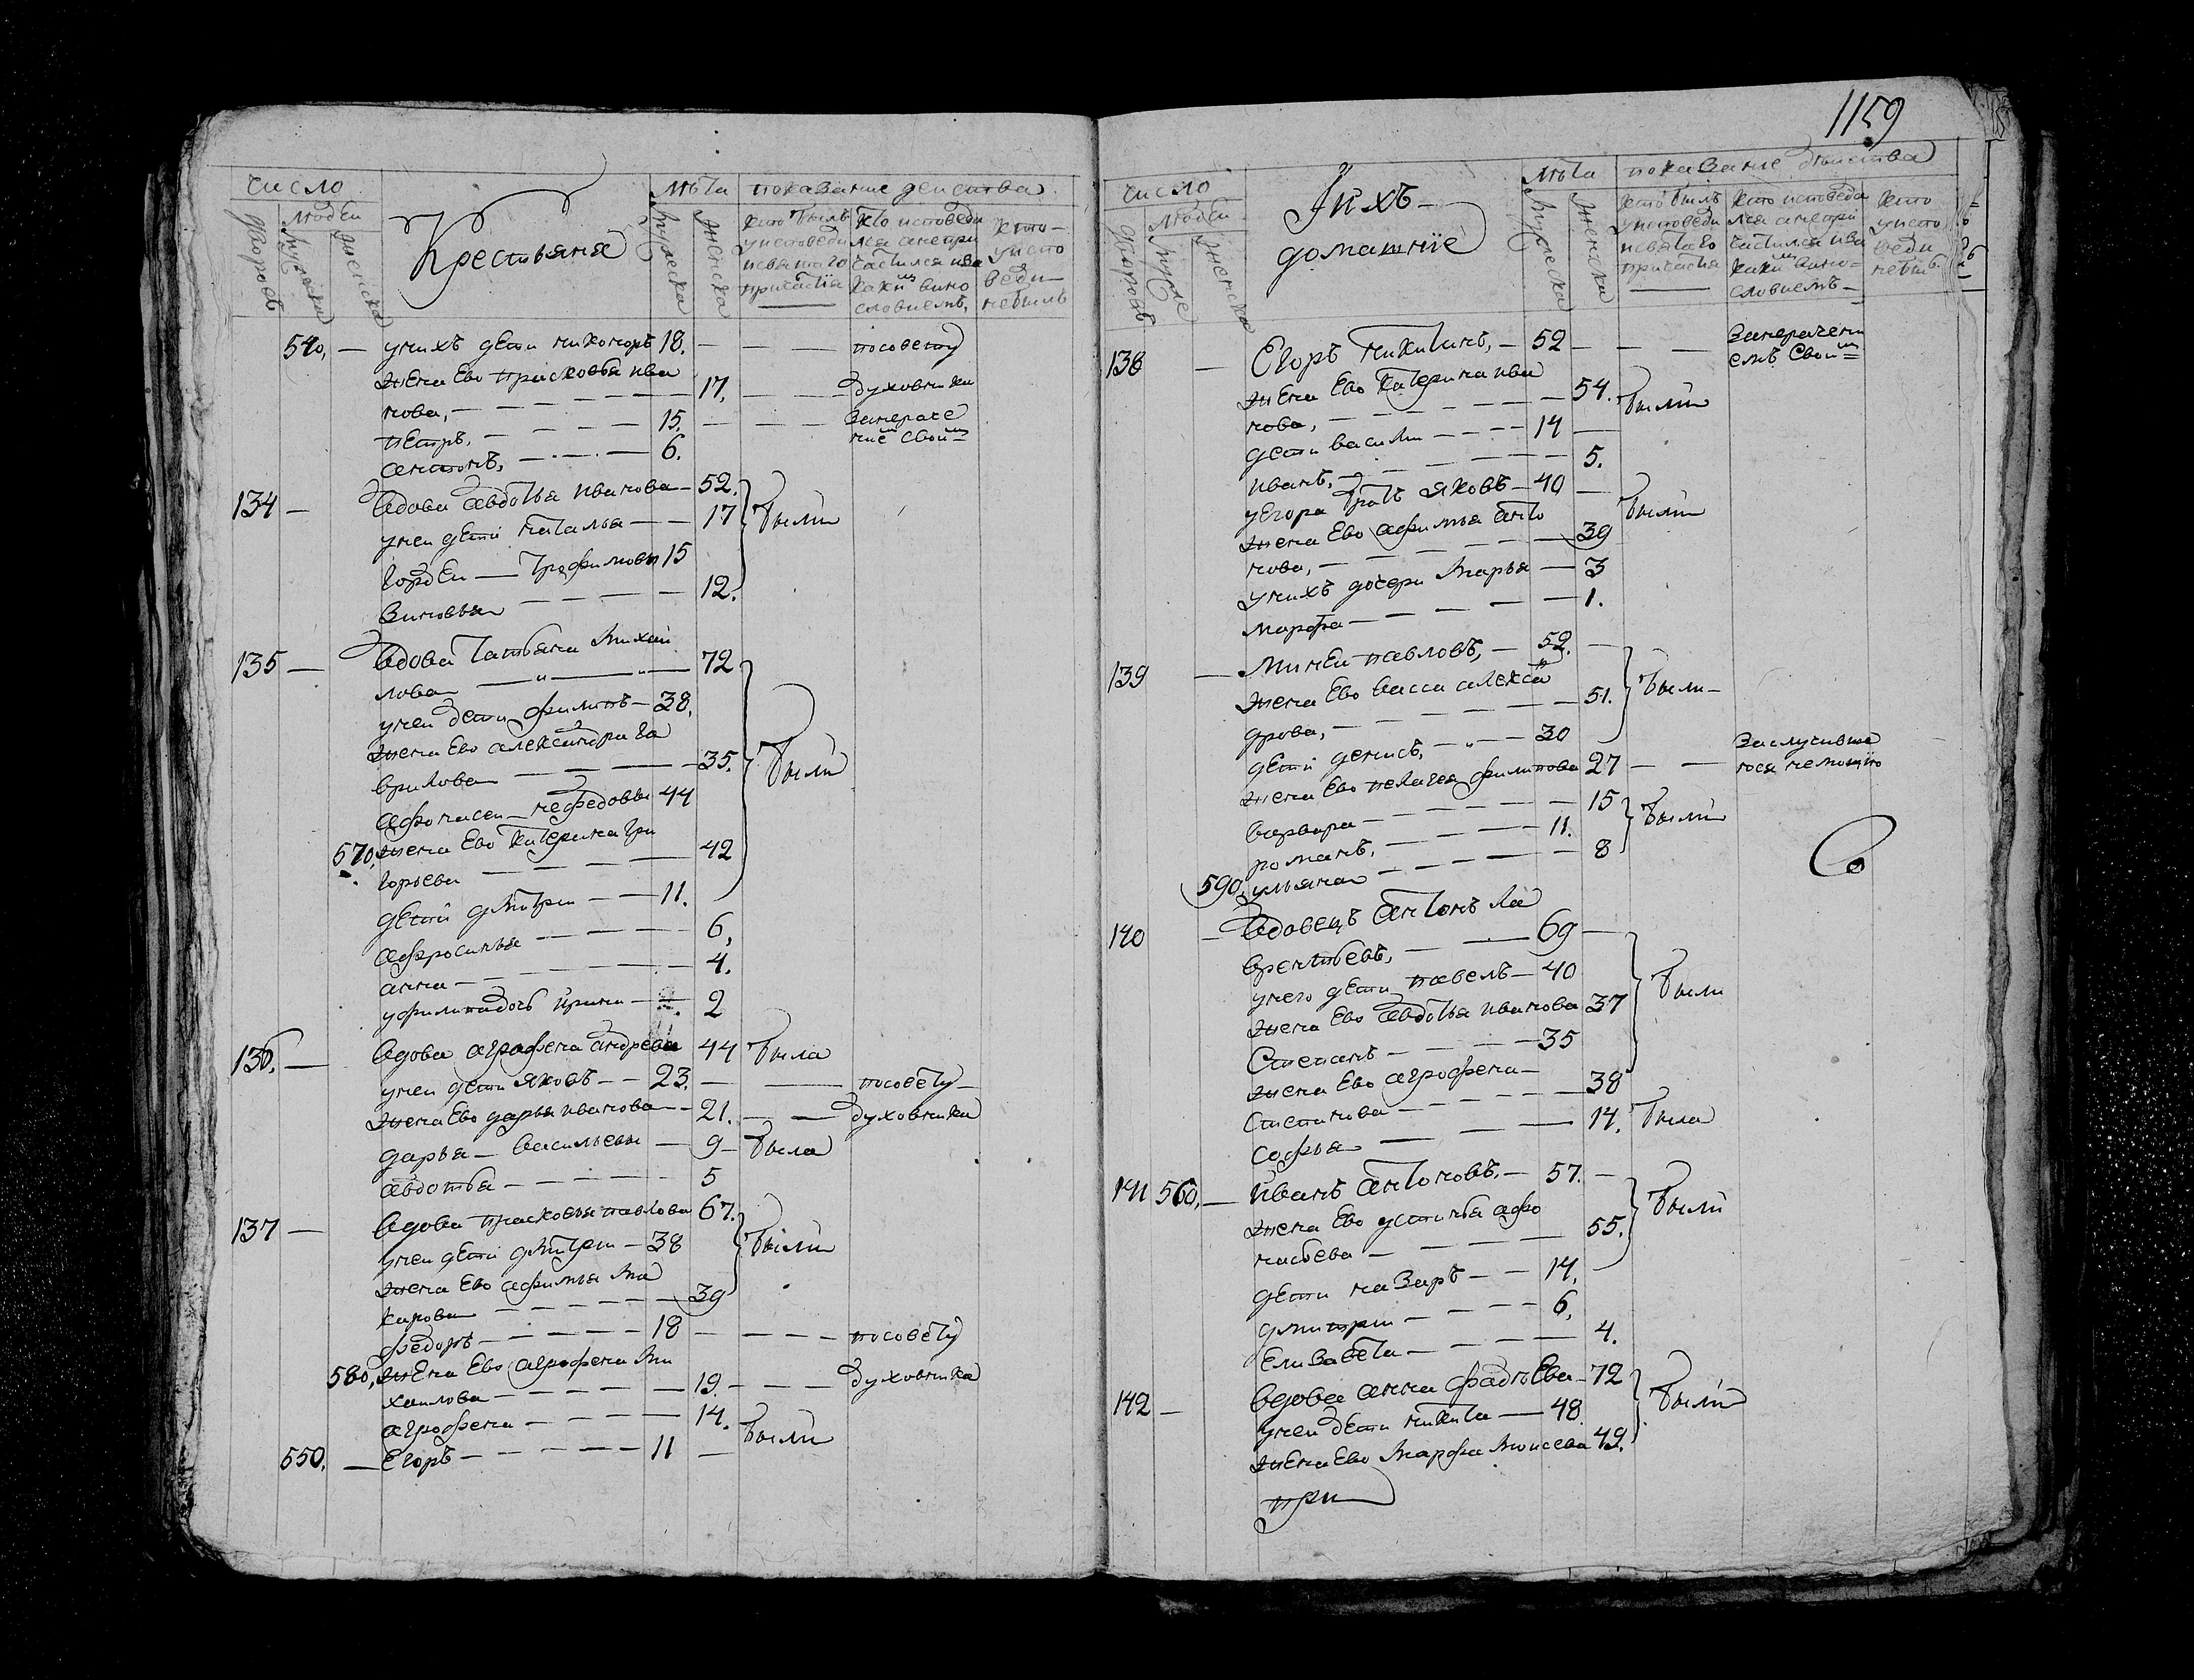 число
Крестьяня
лѣта
показание действа
дворовъ
людей
мужеска
женска
мужеска
женска
кто былъ
у исповеди
и святаго
причастїя
кто исповеда
лся а не при
частился и за
какимъ вино
словиемъ,
кто
у испо
веди
не былъ
540, — у нихъ дети никоноръ 18. — — — посовету
жена Ево прасковья ива
нова, — 17. — — — духовника
петръ, — 15. — — — Занераче
ние свои
антонъ, — 6.
134 — вдова авдотья иванова — 52. были
у неи дети наталья — 17
гордеи — трофимовы 15
Зиновья — 12.
135 — вдова татьяна михаи
лова — 72 были
у неи дети филипъ — 38,
жена Ево александра га
врилова — 35.
афонасеи — нефедовы 44
570, жена Ево катерина гри
горьева — 42
дети дмитреи — 11.
афросинья — 6,
анна — 4.
у филипа дочь ирина — 2
136. — вдова аграфена андрева 44 была
у неи дети яковъ — 23. — — посовету
жена Ево дарья иванова — 21. — — духовника
дарья — васильевы — 9 — была
авдотья — 5
137 — вдова прасковья павлова 67. были
у неи дети дмитреи — 38
жена Ево афимья ма
карова — 39
федоръ — 18 — — — посовету
580, жена Ево агрофена ми
хаилова — 19. — — — духовника
агрофена — 14. были
550. — Егоръ — 11 —
1159
число
И ихъ
домашние
лѣта
показание действа
дворовъ
людей
муже
женска
мужеска
женска
кто былъ
у исповеди
и святаго
причастїя
кто исповеда
лся а не при
частился и за
какимъ вино
словиемъ
кто
у испо
веди
небылъ
138 — Егоръ никитинъ, — 52 — — — Занерачени
емъ свои
жена Ево катерина ива
нова, — 54. были
дети васили — 14 —
иванъ, — 5.
у Егора братъ яковъ — 40 — были
жена Ево афимья анто
нова, — 39
у нихъ дочери марья — 3
марфа — 1.
139 — минеи павловъ, — 52. — были
жена Ево васса алекса
дрова, — 51.
дети денисъ, — 30
жена Ево пелагея филипова 27 — — Заслучивше
юся немощию
варвара — 15 были
романъ, — 11.
590, ульяна — 8
140 — вдовецъ антонъ ла
врентьевъ, — 69 — были
у него дети павелъ — 40
жена Ево авдотья иванова 37
Степанъ — 35
жена Ево агрофена —
Степанова — 38
Софья — 14. была
141 560, — иванъ антоновъ. — 57. — были
жена Ево устинья афо
насьева — 55.
дети назаръ — 14.
дмитреи — 6,
Елизавета — 4.
142 — вдова анна фадѣева — 72 были
у неи дети никита — 48
жена Ево марфа моисева 49.
при